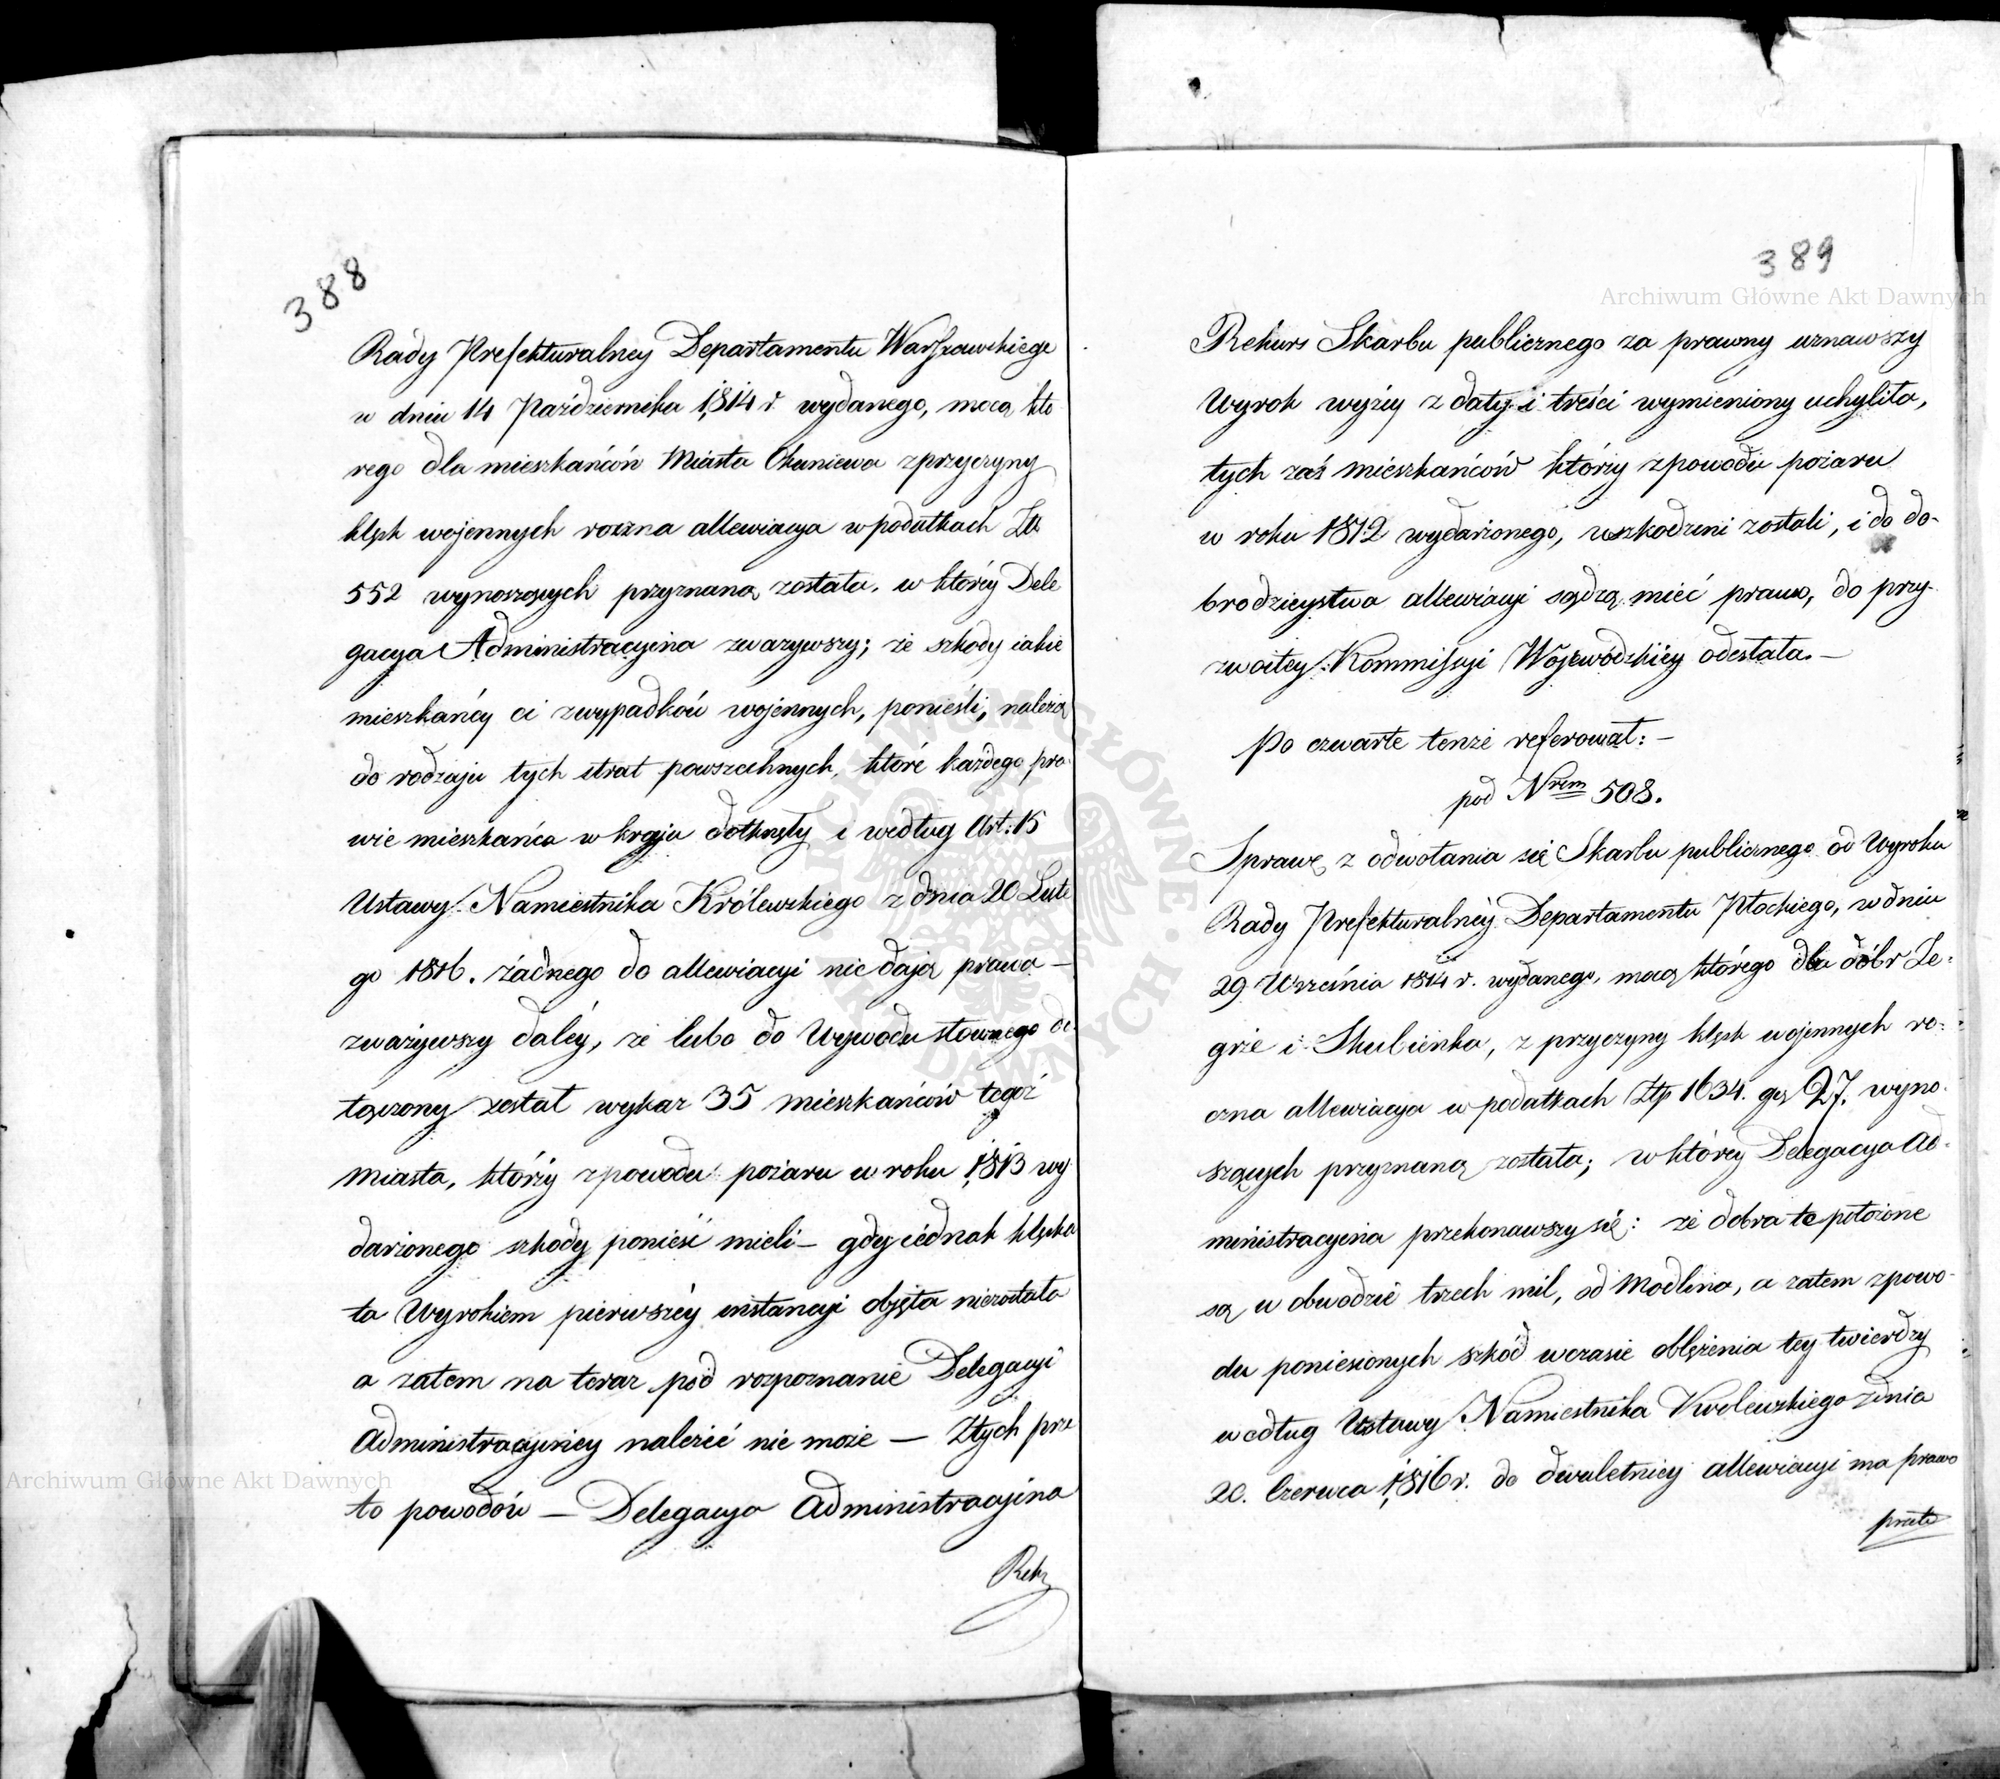 388
Rady Prefekturalney Departamentu Warszawskiego
w dniu 14 Października 1814 r. wydanego, mocą któ
rego dla mieszkańców Miasta Okuniewa z przyczyny
klęsk wojennych roczna allewiacya w podatkach Złt
552 wynoszących przyznaną została, w którey Dele
gacya Administracyina zważywszy; że szkody iakie
mieszkańcy ci z wypadków wojennych, ponieśli, należą
do rodzaju tych strat powszechnych, które każdego pra
wie mieszkańca w kraju dotknęły i według Art: 15
Ustawy Namiestnika Królewskiego z dnia 20 Lute
go 1816. żadnego do allewiacyi nie dają prawa —
zważywszy daléy, że lubo do Wywodu słownego do
łączony został wykaz 35 mieszkańców tegoż
Miasta, którzy z powodu pożaru w roku 1813 wy
darzonego szkody ponieść mieli — gdy iednak klęska
ta Wyrokiem pierwszéy instancyi objęta niezostała
a zatem na teraz pod rozpoznanie Delegacyi
Administracyiney należeć nie może — Z tych prze
to powodów — Delegacya Administracyina
Rekr
389
Archiwum Główne Akt Dawnych
Rekurs Skarbu publicznego za prawny uznawszy
Wyrok wyżey z daty i treści wymieniony uchyliła,
tych zaś mieszkańców którzy z powodu pożaru
w roku 1812 wydarzonego, uszkodzeni zostali, i do do-
brodzieystwa allewiacyi sądzą mieć prawo, do przy-
zwoitey Kommissyi Wojewódzkiey odesłała. —
Po czwarte tenże referował: —
pod Nrem 508.
Sprawę z odwołania się Skarbu publicznego od Wyroku
Rady Prefekturalnéy Departamentu Płockiego, w dniu
29 Września 1814 r. wydanego, mocą którego dla dóbr Ze-
grze i Skubienka, z przyczyny klęsk wojennych ro-
czna allewiacya w podatkach Złp 1634. gr 27. wyno-
szących przyznaną została; w którey Delegacya Ad-
ministracyina przekonawszy się: że dobra te położone
są w obwodzie trzech mil, od Modlina, a zatem z powo-
du poniesionych szkód w czasie oblężenia tey twierdzy
według Ustawy Namiestnika Krolewskiego z dnia
20. Czerwca 1816 r. do dwuletniey allewiacyi ma prawo
przeto
Archiwum Główne Akt Dawnych
ARCHIWUM GŁÓWNE AKT DAWNYCH